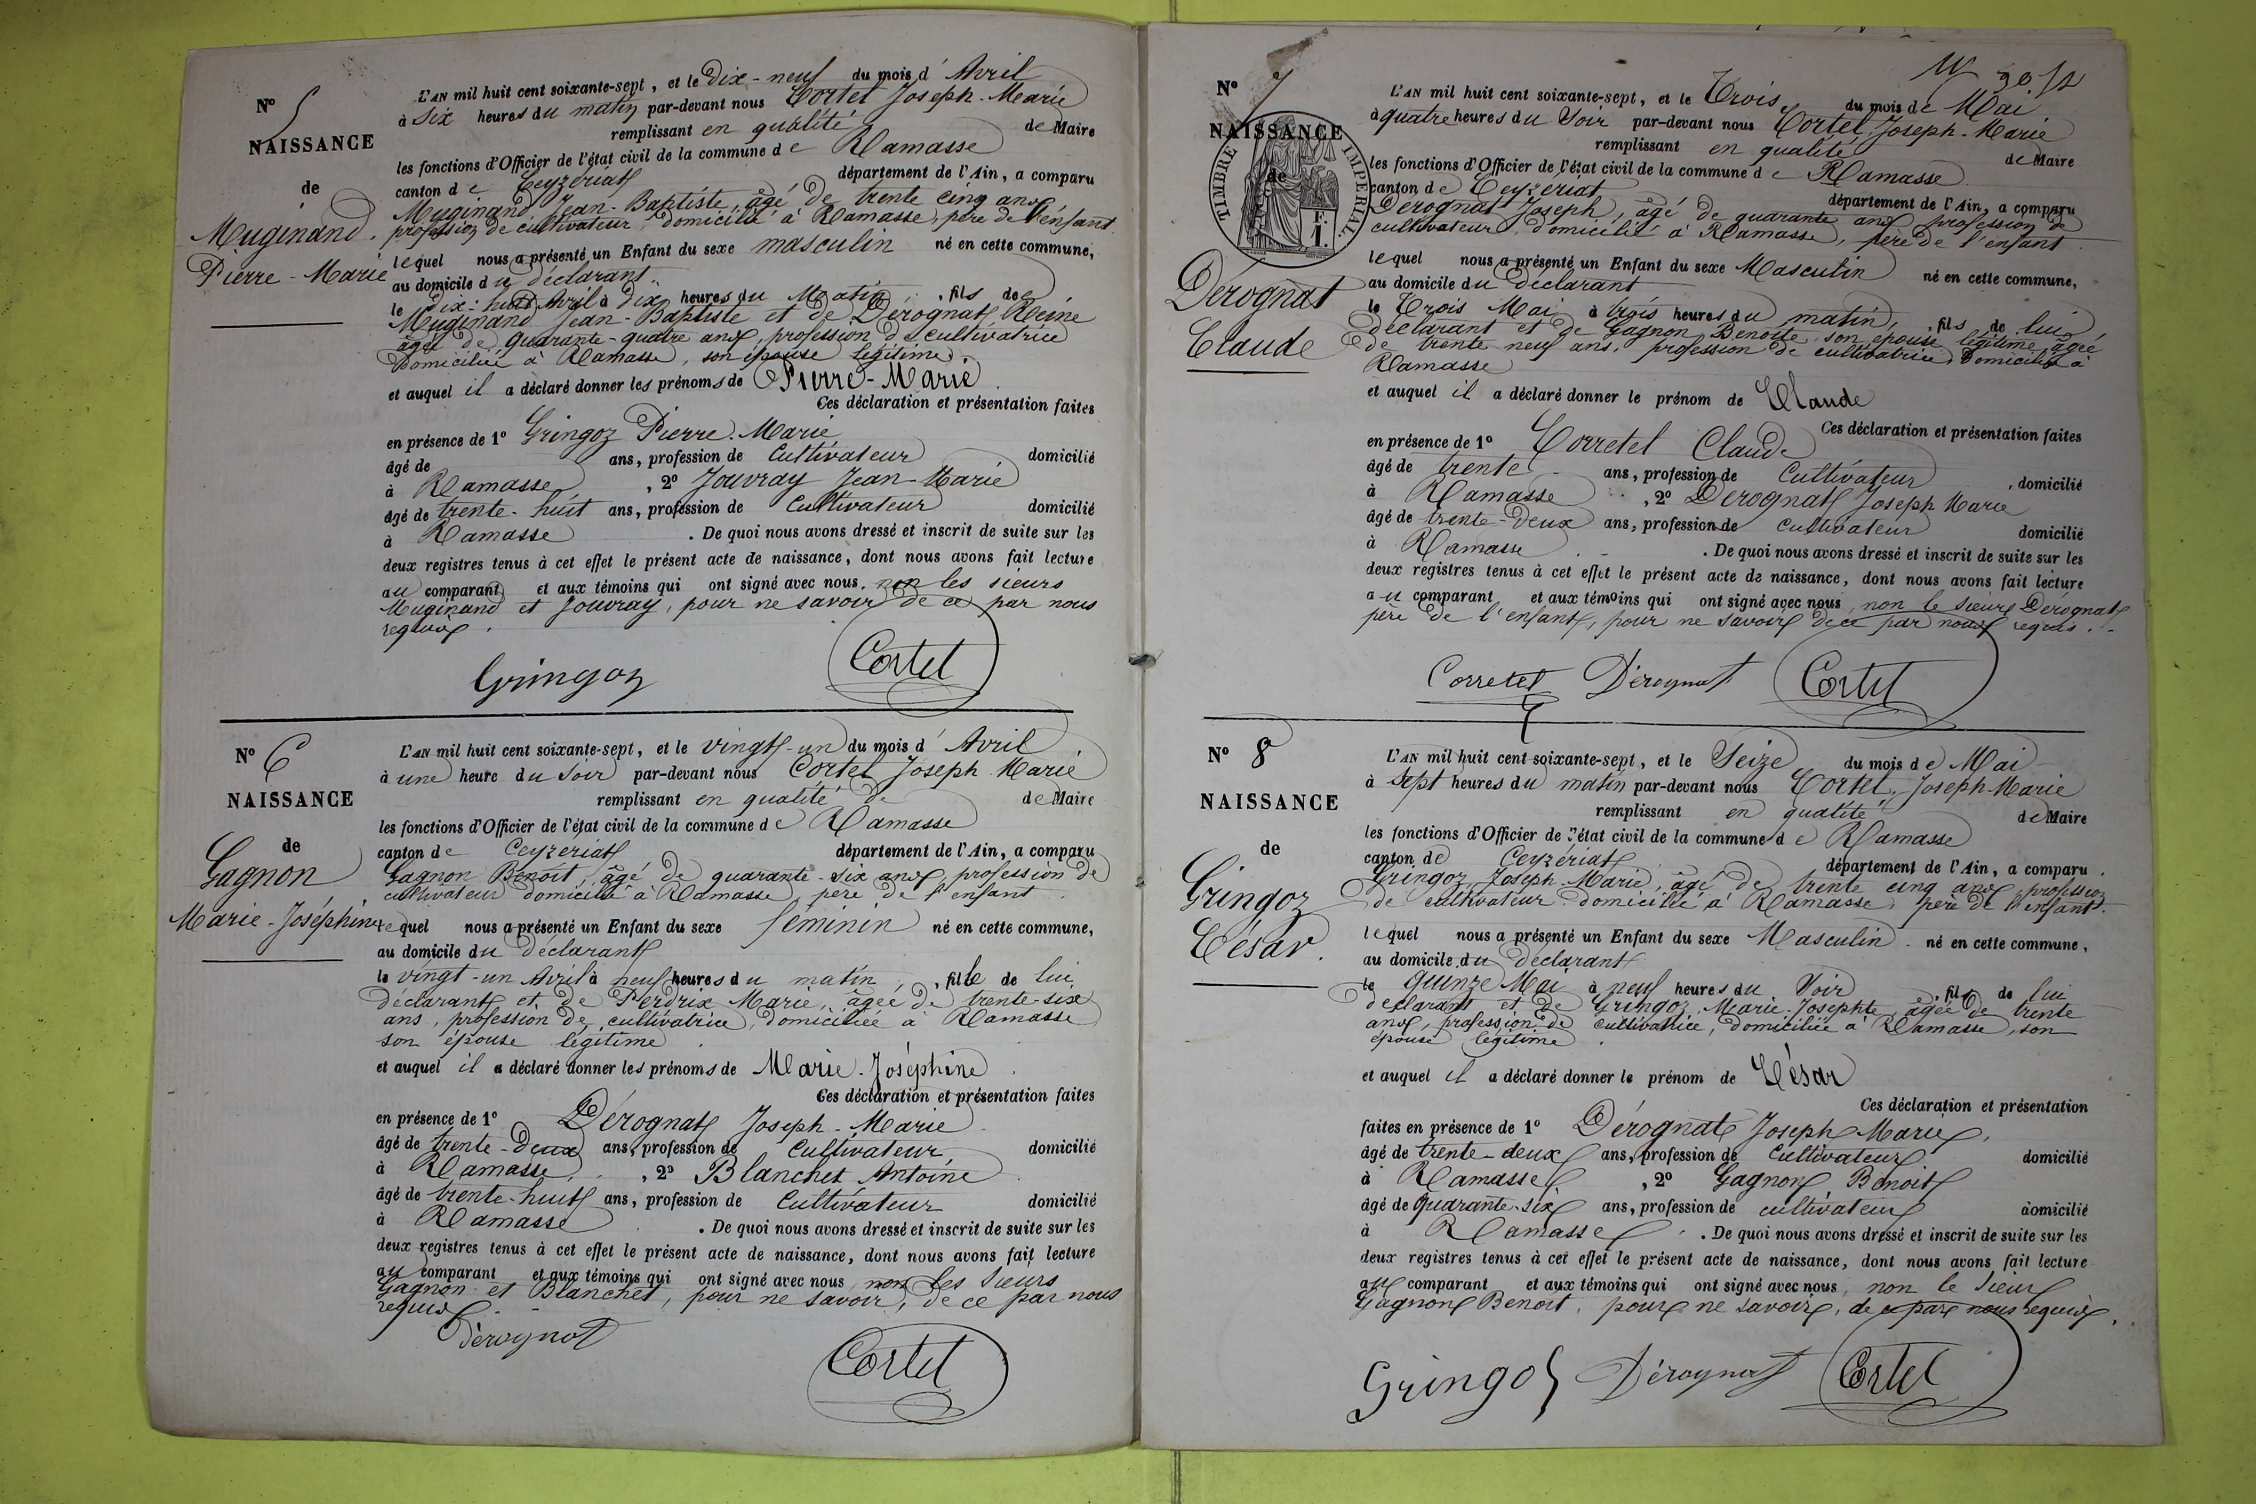 N° 5
NAISSANCE
de
Muginand
Pierre-Marie
L'AN mil huit cent soixante-sept, et le Dix-neuf du mois d'Avril
à six heures du matin par-devant nous Cortel Joseph-Marie
remplissant en qualité de Maire
les fonctions d'Officier de l'état civil de la commune de Ramasse
canton de Ceyzériat département de l'Ain, a comparu
Muginand Jean-Baptiste, âgé de trente cinq ans,
profession de cultivateur, domicilié à Ramasse, père de l'enfant
lequel nous a présenté un Enfant du sexe masculin né en cette commune,
au domicile du déclarant
le dix-huit Avril à dix heures du Matin, fils de
Muginand Jean-Baptiste et de Dérognat Reine
âgée de quarante-quatre ans, profession de cultivatrice
domiciliée à Ramasse, son épouse légitime.
et auquel il a déclaré donner les prénoms de Pierre-Marie.
Ces déclaration et présentation faites
en présence de 1° Gringoz Pierre-Marie
âgé de ans, profession de Cultivateur domicilié
à Ramasse, 2° Jouvray Jean-Marie
âgé de trente-huit ans, profession de Cultivateur domicilié
à Ramasse. De quoi nous avons dressé et inscrit de suite sur les
deux registres tenus à cet effet le présent acte de naissance, dont nous avons fait lecture
au comparant et aux témoins qui ont signé avec nous, non les sieurs
Muginand et Jouvray, pour ne savoir de ce par nous
requis.
Gringoz Cortel
N° 6
NAISSANCE
de
Gagnon
Marie-Joséphine
L'AN mil huit cent soixante-sept, et le vingt-un du mois d'Avril
à une heure du Soir par-devant nous Cortel Joseph-Marie
remplissant en qualité de de Maire
les fonctions d'Officier de l'état civil de la commune de Ramasse
canton de Ceyzériat département de l'Ain, a comparu
Gagnon Benoit, âgé de quarante-six ans, profession de
cultivateur domicilié à Ramasse père de l'enfant.
lequel nous a présenté un Enfant du sexe féminin né en cette commune,
au domicile du déclarant
le vingt-un Avril à neuf heures du matin, fille de lui
déclarant et de Perdrix Marie, âgée de trente-six
ans, profession de cultivatrice, domiciliée à Ramasse
son épouse légitime.
et auquel il a déclaré donner les prénoms de Marie-Joséphine.
Ces déclaration et présentation faites
en présence de 1° Dérognat Joseph-Marie
âgé de trente-deux ans, profession de Cultivateur, domicilié
à Ramasse, 2° Blanchet Antoine
âgé de trente-huit ans, profession de Cultivateur domicilié
à Ramasse. De quoi nous avons dressé et inscrit de suite sur les
deux registres tenus à cet effet le présent acte de naissance, dont nous avons fait lecture
au comparant et aux témoins qui ont signé avec nous non les Sieurs
Gagnon et Blanchet, pour ne savoir, de ce par nous
requis.
Dérognat Cortel
N° 7
NAISSANCE
de
TIMBRE IMPÉRIAL
Dérognat
Claude
L'AN mil huit cent soixante-sept, et le Trois du mois de Mai
à quatre heures du Soir par-devant nous Cortel Joseph-Marie
remplissant en qualité de Maire
les fonctions d'Officier de l'état civil de la commune de Ramasse
canton de Ceyzériat département de l'Ain, a comparu
Dérognat Joseph, âgé de quarante ans, profession de
cultivateur, domicilié à Ramasse, père de l'enfant.
lequel nous a présenté un Enfant du sexe Masculin né en cette commune,
au domicile du déclarant
le Trois Mai à trois heures du matin, fils de lui
déclarant et de Gagnon Benoite son épouse légitime, âgée
de trente neuf ans, profession de cultivatrice domiciliée à
Ramasse
et auquel il a déclaré donner le prénom de Claude
Ces déclaration et présentation faites
en présence de 1° Corretel Claude
âgé de trente ans, profession de Cultivateur, domicilié
à Ramasse, 2° Dérognat Joseph Marie
âgé de trente-deux ans, profession de cultivateur domicilié
à Ramasse. De quoi nous avons dressé et inscrit de suite sur les
deux registres tenus à cet effet le présent acte de naissance, dont nous avons fait lecture
au comparant et aux témoins qui ont signé avec nous, non le Sieur Dérognat
père de l'enfant, pour ne savoir de ce par nous requis.
Corretel Dérognat Cortel
N° 8
NAISSANCE
de
Gringoz
César.
L'AN mil huit cent soixante-sept, et le Seize du mois de Mai
à sept heures du matin par-devant nous Cortel Joseph-Marie
remplissant en qualité de Maire
les fonctions d'Officier de l'état civil de la commune de Ramasse
canton de Ceyzériat département de l'Ain, a comparu
Gringoz Joseph-Marie, âgé de trente cinq ans, profession
de cultivateur domicilié à Ramasse, père de l'enfant.
lequel nous a présenté un Enfant du sexe Masculin né en cette commune,
au domicile du déclarant
le quinze Mai à neuf heures du Soir, fils de lui
déclarant et de Gringoz Marie-Josephte, âgée de trente
ans, profession de cultivatrice, domiciliée à Ramasse, son
épouse légitime.
et auquel il a déclaré donner le prénom de César
Ces déclaration et présentation
faites en présence de 1° Dérognat Joseph Marie,
âgé de trente-deux ans, profession de Cultivateur domicilié
à Ramasse, 2° Gagnon Benoit
âgé de quarante-six ans, profession de cultivateur domicilié
à Ramasse. De quoi nous avons dressé et inscrit de suite sur les
deux registres tenus à cet effet le présent acte de naissance, dont nous avons fait lecture
au comparant et aux témoins qui ont signé avec nous, non le Sieur
Gagnon Benoit, pour ne savoir, de ce par nous requis.
Gringoz Dérognat Cortel